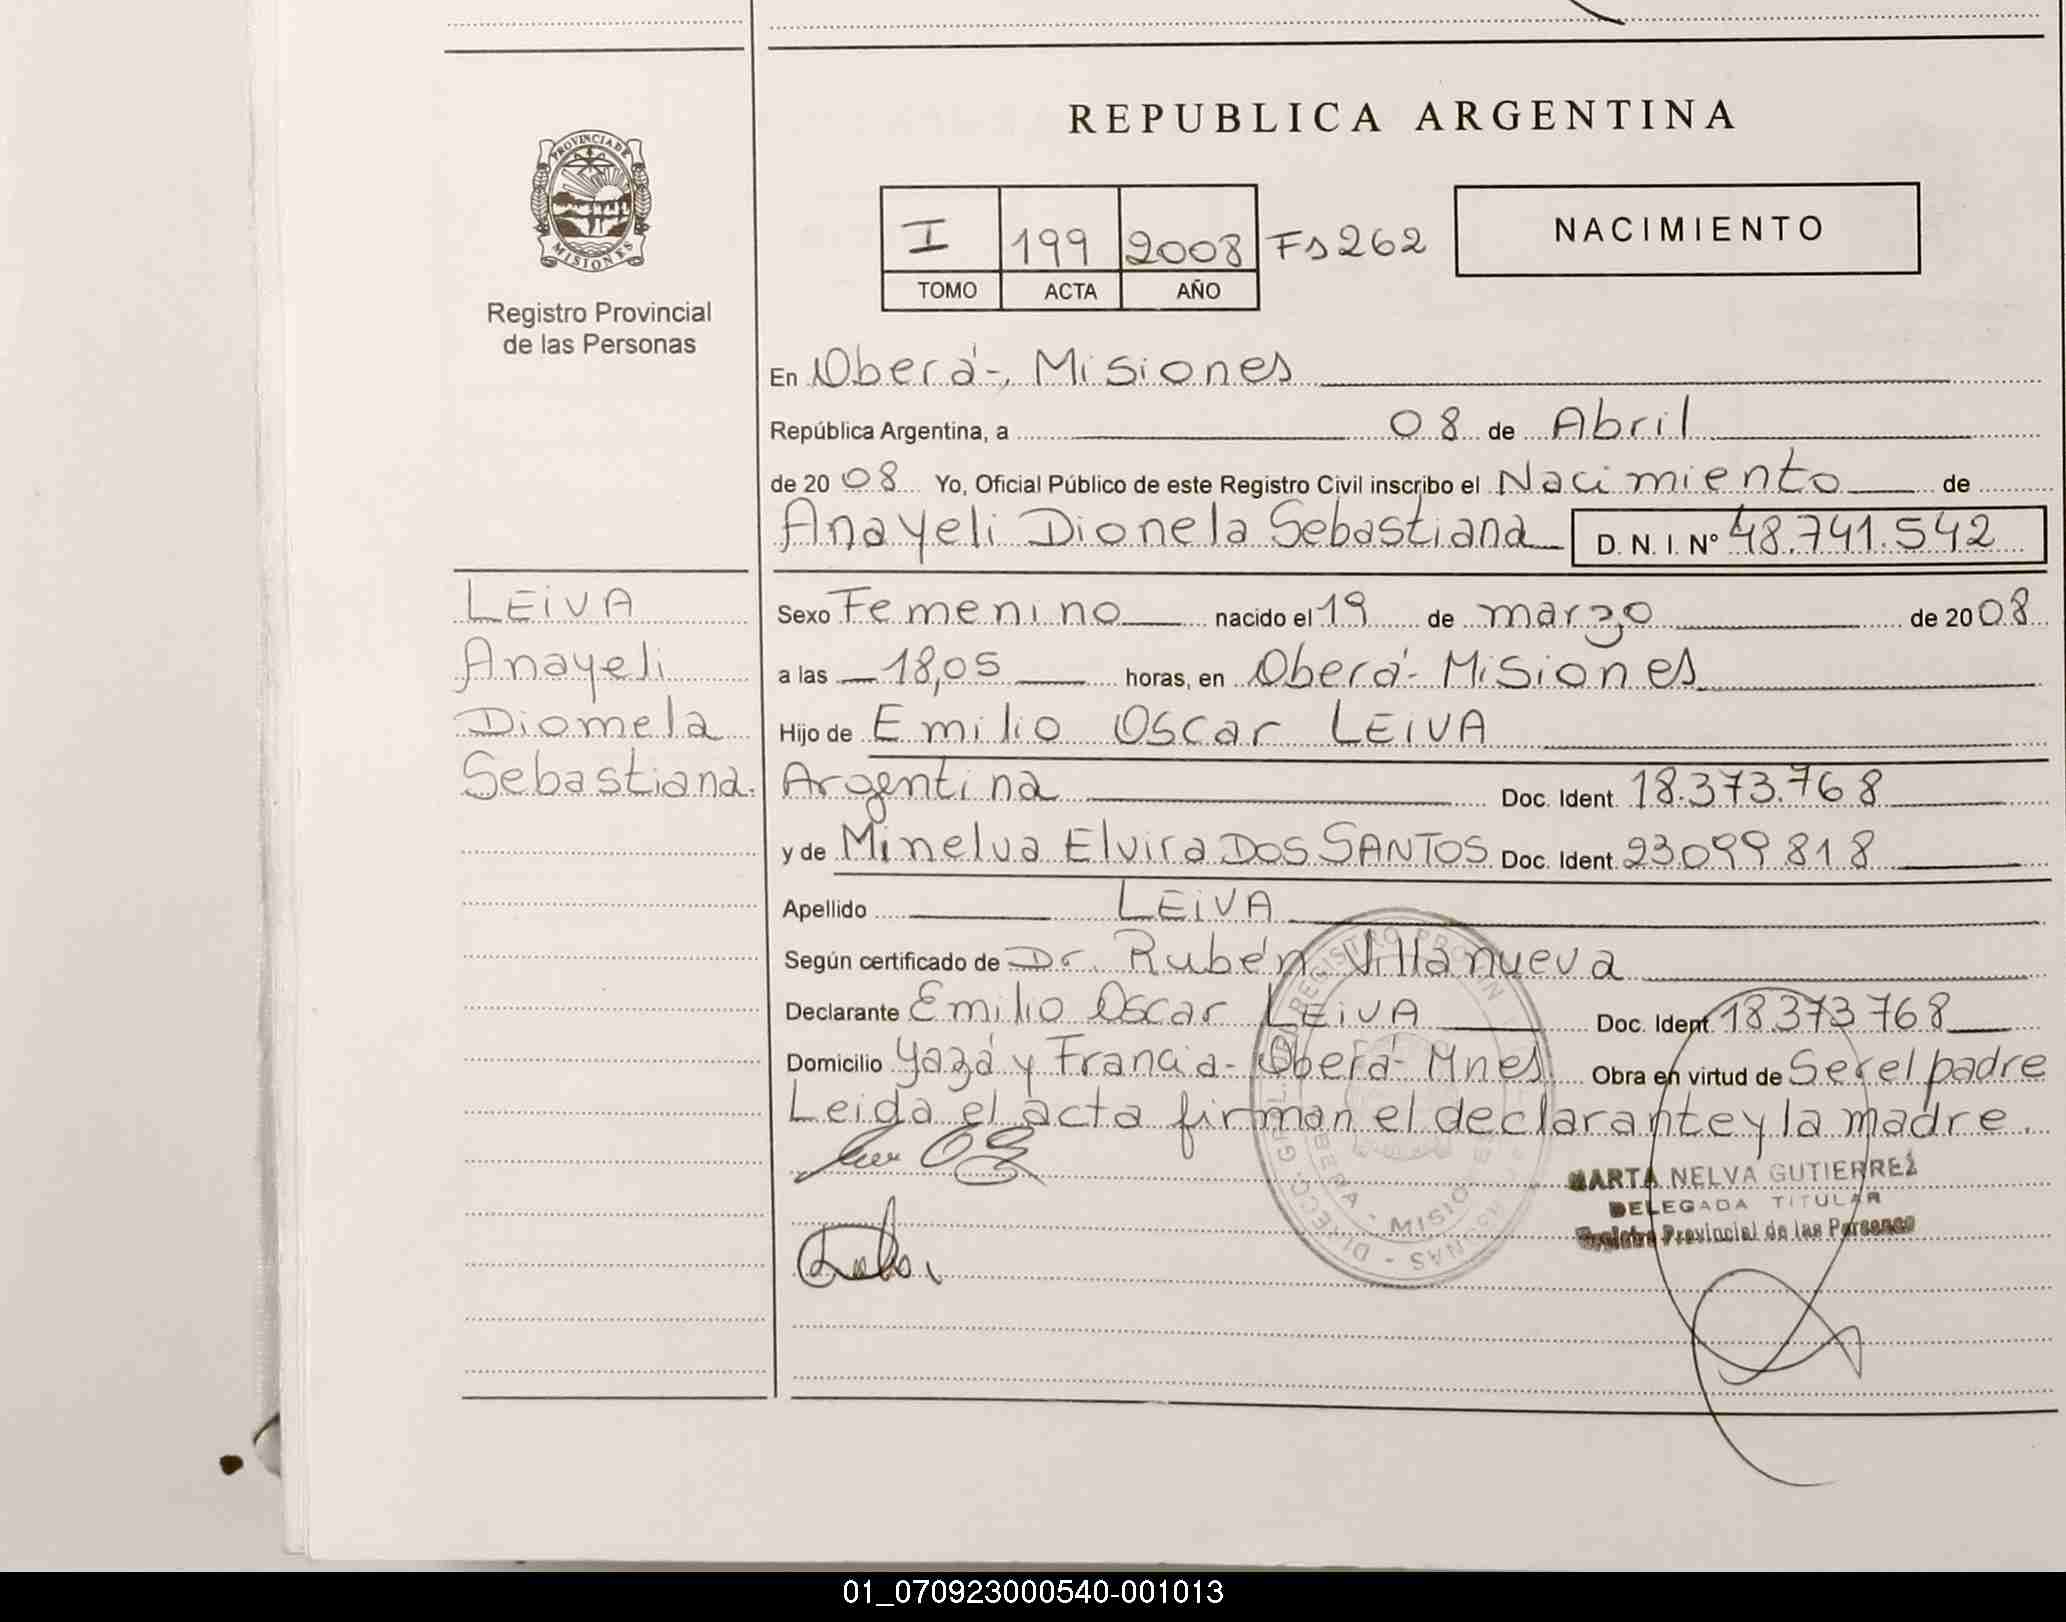 REPUBLICA ARGENTINA
PROVINCIA DE
MISIONES
Registro Provincial
de las Personas
I 199 2008 Fs 262
TOMO ACTA AÑO
NACIMIENTO
En Oberá-, Misiones
República Argentina, a 08 de Abril
de 2008 Yo, Oficial Público de este Registro Civil inscribo el Nacimiento de
Anayeli Dionela Sebastiana D. N. I. Nº 48.741.542
LEIVA
Anayeli
Diomela
Sebastiana.
Sexo Femenino nacido el 19 de marzo de 2008
a las 18,05 horas, en Oberá- Misiones
Hijo de Emilio Oscar LEIVA
Argentina Doc. Ident. 18.373.768
y de Minelva Elvira DOS SANTOS Doc. Ident. 23099818
Apellido LEIVA
Según certificado de Dr. Rubén Villanueva
Declarante Emilio Oscar LEIVA Doc. Ident. 18373768
Domicilio Yazá y Francia- Oberá- Mnes Obra en virtud de Ser el padre
Leida el acta firman el declarante y la madre.
MARTA NELVA GUTIERREZ
DELEGADA TITULAR
Registro Provincial de las Personas
01_070923000540-001013